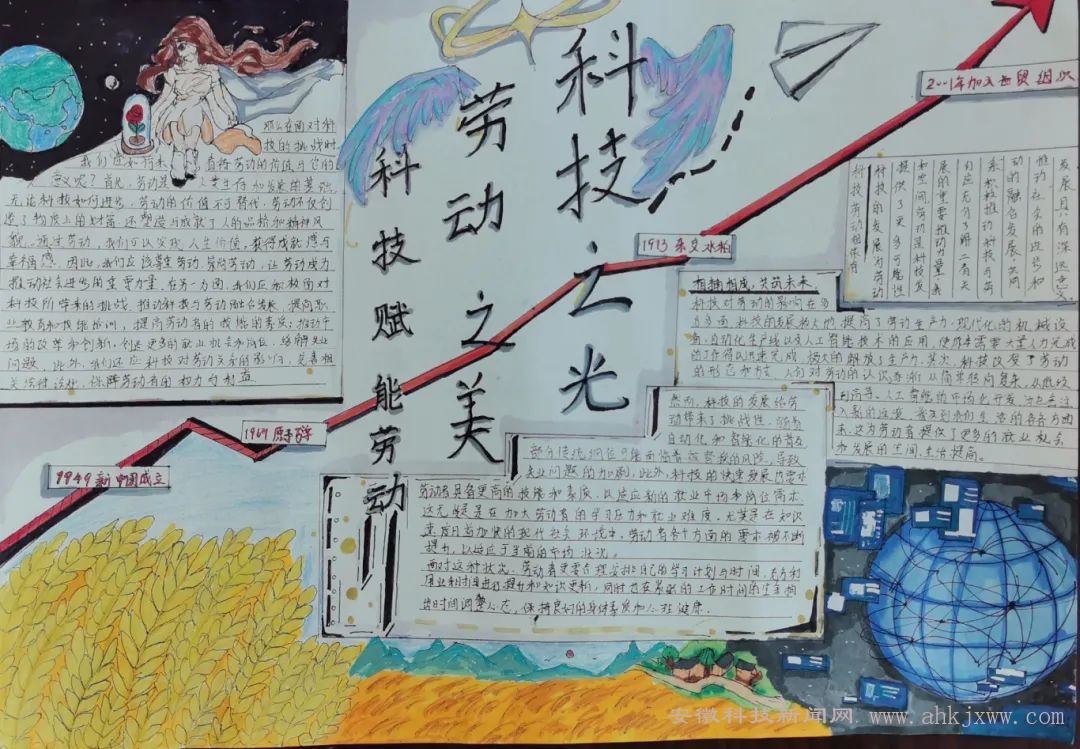 科技之光
劳动之美
科技赋能劳动
2001年加入世贸组织
1973 杂交水稻
1964 原子弹
1949 新中国成立
那么在面对科
技的挑战时
我们应如何
看待劳动的价值与它的
意义呢？首先，劳动是人类生存和发展的基础，
无论科技如何进步，劳动的价值不可替代，劳动不仅创
造了物质上的财富，还塑造与成就了人的品格和精神风
貌。通过劳动，我们可以实现人生价值，获得成就感与
幸福感。因此，我们应该尊重劳动，崇尚劳动，让劳动成为
推动社会进步的重要力量。在另一方面，我们应积极面对
科技所带来的挑战，推动科技与劳动融合发展，提高职
业教育和技能培训，提高劳动者的技能和素质；推动市
场的改革和创新，创造更多的就业机会和岗位，缓解失业
问题。此外，我们还应科技对劳动关系的影响，完善相
关法律法规，保障劳动者的权力与利益。
科技与劳动相辅相
科技的发展为劳动
提供了更多可能性
和空间，劳动是科技发
展的重要推动力量，我
们应充分了解二者关
系，积极推动科技与劳
动的融合发展，共同
推动社会的进步和
发展具有深远意义。
相辅相成，共筑未来
科技对劳动的影响在多
个方面，科技的发展极大地提高了劳动生产力，现代化的机械设
备，自动化生产线以及人工智能技术的应用，使原本需要大量人力完成
的工作得以迅速完成，极大的解放了生产力。其次，科技改变了劳动
的形态和方式，人们对劳动的认识逐渐从简单转向复杂，从低级
向高等。人工智能的
入
来，这为劳动者提供了更多的就业机会
和发展的空间，生活提高。
然而，科技的发展给劳
动带来了挑战性，随着
自动化和智能化的普及
部分传统岗位可能面临着被替代的风险，导致
失业问题的加剧。此外，科技的快速发展仍要求
劳动者具备更高的技能和素质，以适应新的就业市场和岗位需求，
这无疑是在加大劳动者的学习压力和就业难度，尤其是在知识
更
提升，以适应于当前的市场状况。
面对这种状况，劳动者更要合理安排自己的学习计划与时间，充分利
用业余时间进行提升和知识更新，同时也在
当时间调整心态，保持良好的身体素质和心理健康。
安徽科技新闻网 www.ahkjxww.com